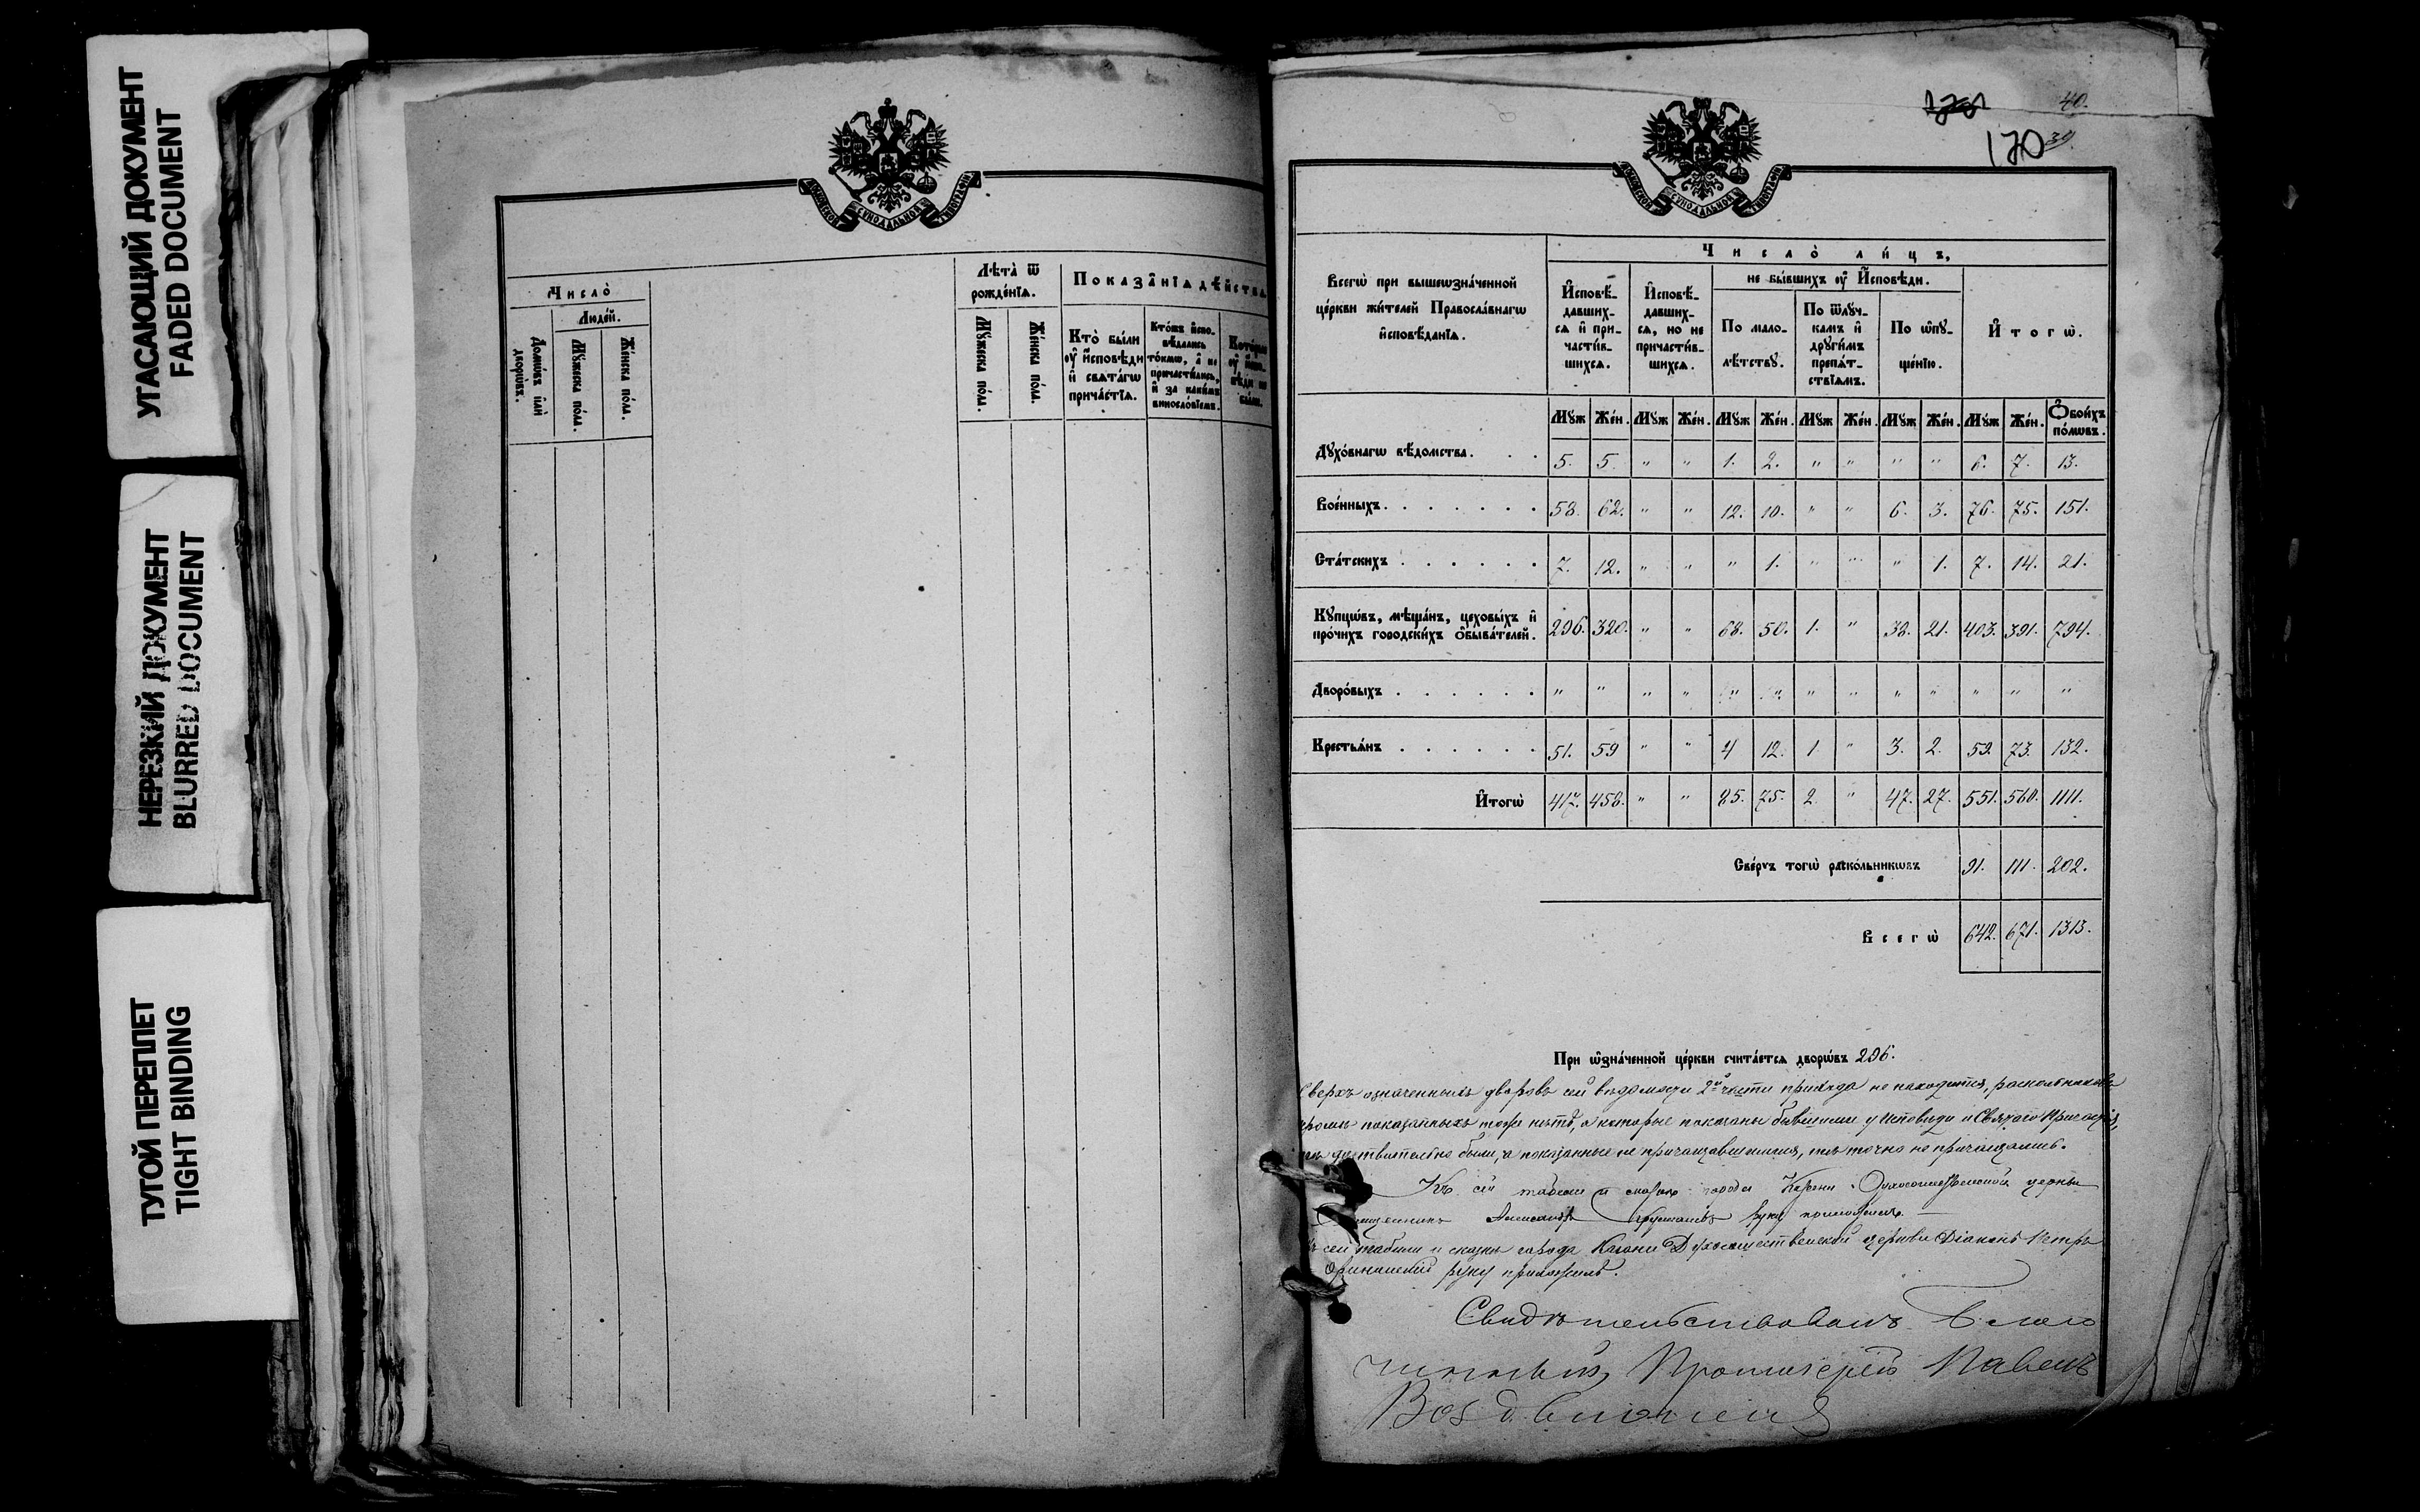 УГАСАЮЩИЙ ДОКУМЕНТ
FADED DOCUMENT
НЕРЕЗКИЙ ДОКУМЕНТ
BLURRED DOCUMENT
ТУГОЙ ПЕРЕПЛЕТ
TIGHT BINDING
МОСКОВСКОЙ СѴНОДАЛЬНОЙ ТИПОГРАФІИ
Число̀
Людéй.
Домѡ́въ и҆лѝ дворѡ́въ.
Мꙋ́жеска по́лꙋ.
Же́нска по́лꙋ.
Лѣта̀ ѿ рожде́нїѧ.
Мꙋ́жеска по́лꙋ.
Же́нска по́лꙋ.
Показа̑нїѧ дѣ́йства
Кто̀ бы́ли ᲂу҆ и҆́сповѣди и҆ свѧта́гѡ прича́стїѧ.
Кто́жъ и҆спо-
вѣ́дались то́кмѡ, а҆ не причасти́лись, и҆ за каки́мъ винослові́емъ.
МОСКОВСКОЙ СѴНОДАЛЬНОЙ ТИПОГРАФІИ
40.
170 39.
Всегѡ̀ при вышеѡзна́ченной
це́ркви жи́телей Правосла́внагѡ
и҆сповѣ́данїѧ.
Число̀ ли́цъ,
И҆сповѣ́-
давших-
сѧ и҆ при-
части́в-
шихсѧ.
И҆сповѣ́-
давших-
сѧ, но не
причасти́в-
шихсѧ.
не бы́вшихъ ᲂу҆ И҆́сповѣди.
По мало-
лѣ́тствꙋ.
По ѿлꙋ́ч-
камъ и҆
дрꙋги̑мъ
препѧ́т-
ствїѧмъ.
По ѡ҆пꙋ-
ще́нїю.
И҆того̀.
Мꙋж Же́н. Мꙋж Же́н. Мꙋж Же́н. Мꙋж Же́н. Мꙋж Же́н. Мꙋж Же́н. Ѻ҆бои́хъ по́лѡвъ.
Дꙋхо́внагѡ вѣ́домства. 5. 5. " " 1. 2. " " " " 6. 7. 13.
Вое́нныхъ. 58. 62. " " 12. 10. " " 6. 3. 76. 75. 151.
Ста́тскихъ 7. 12. " " " 1. " " " 1. 7. 14. 21.
Кꙋпцѡ́въ, мѣща́нъ, цеховы́хъ и҆
про́чихъ городски́хъ ѻ҆быва́телей. 296. 320. " " 68. 50. 1. " 38. 21. 403. 391. 794.
Дворо́выхъ " " " " " " " " " " " " "
Крестьѧ́нъ 51. 59 " " 4 12. 1. " 3. 2. 59. 73. 132.
И҆того̀ 417. 458. " " 85. 75. 2. " 47. 27. 551. 560. 1111.
Све́рхъ тогѡ̀ раско́льникѡвъ 91. 111. 202.
Всегѡ̀ 642. 671. 1313.
При ѡ҆зна́ченной це́ркви счита́етсѧ дворѡ́въ 296.
Сверхъ означенныхъ дворовъ сей ведомости 2й части прихода не находится, раскольниковъ
кромѣ показанныхъ тоже нѣтъ, а которые показаны бывшими у исповѣди и Святаго Причастія,
тѣ дѣйствительно были, а показанные не причащавшимися, тѣ точно не причащались.
Къ сей табели и сказкѣ города Казани Духосошественской церкви
Священникъ Александръ руку приложилъ.
Къ сей табели и сказкѣ города Казани Духосошественской церкви Діаконъ Петръ
руку приложилъ.
Свидѣтельствовалъ Благо
чинный, Протоіерей Павелъ